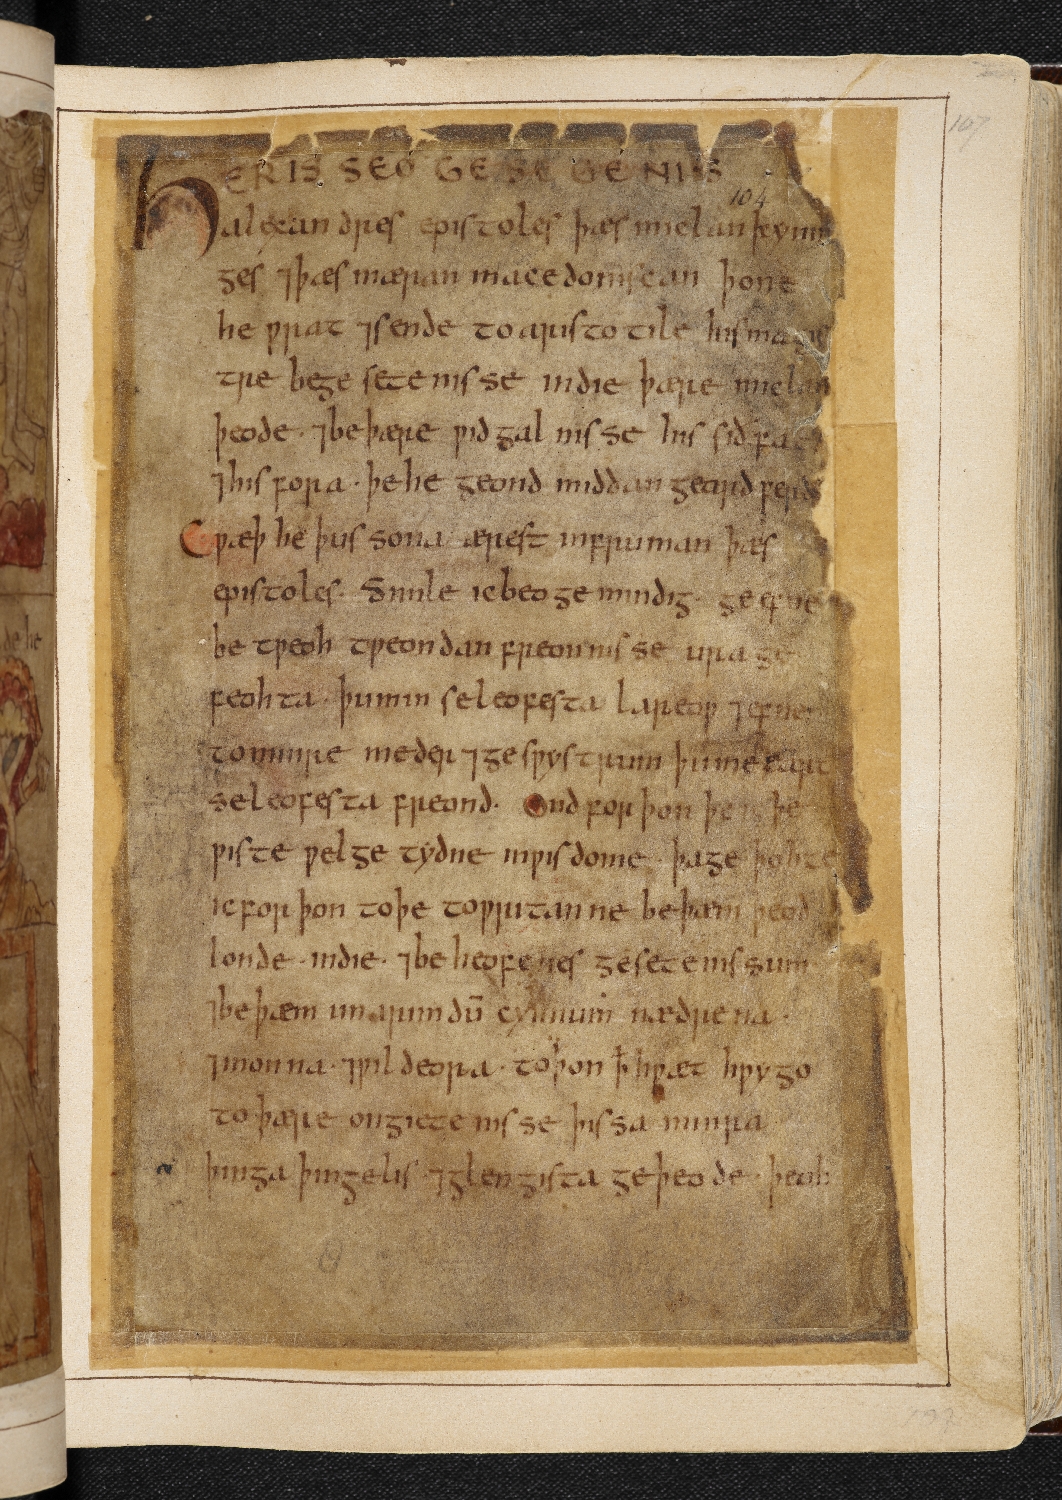 HER IS SEO GESEGENIS
alexandres epistoles þæs miclan kynin
ges ⁊ þæs mæran macedoniscan þone
he ƿrat ⁊ sende to aristotile his magis
tre be gesetenisse indie þære miclan
þeode · ⁊ be þære ƿidgalnisse his siðfato
⁊ his fora · þe he geond middangeard ferde
Cƿæþ he þus sona ærest in fruman þæs
epistoles · Simle ic beo gemindig · ge efne
be tƿeoh tƿeondan frecennisse ura ge
feohta · þu min se leofesta lareoƿ ⁊ efne
to minre meder ⁊ gesƿystrum þu me eart
se leofesta freond · Ond forþon þe ic þe
ƿiste ƿel getydne in ƿisdome · þa geþohte
ic forþon to þe to ƿritanne be þæm þeod
londe · indie · ⁊ be heofenes gesetenissum
⁊ be þæm unarimdū cynnum nædrena ·
⁊ monna · ⁊ ƿildeora · to þon ꝥ hƿæt hƿygo
to þære ongietenisse þissa minra
þinga þin gelis · ⁊ glengista geþeode · þeoh
104
107
197